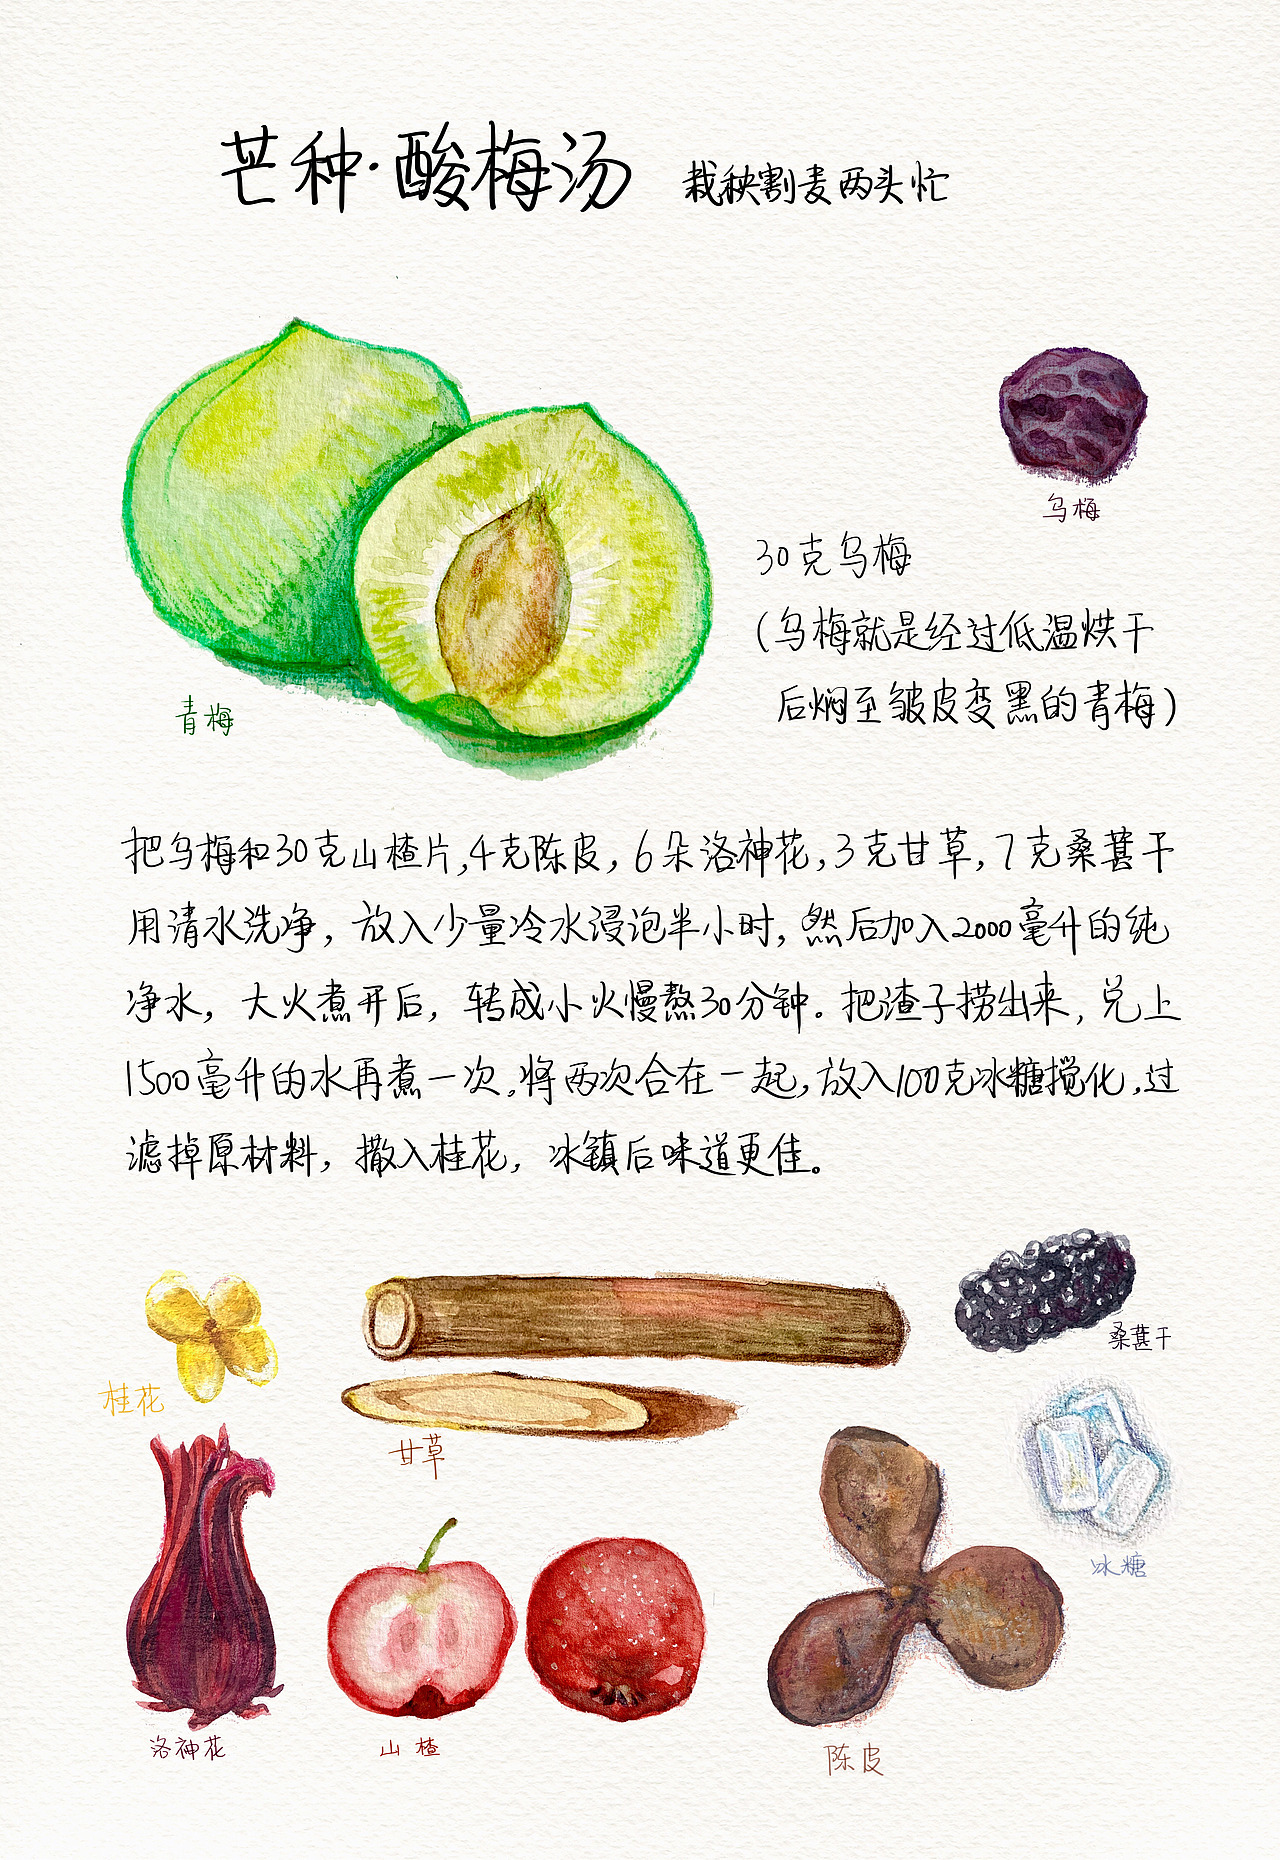 芒种·酸梅汤 栽秧割麦两头忙
乌梅
30克乌梅
(乌梅就是经过低温烘干
后焖至皱皮变黑的青梅)
青梅
把乌梅和30克山楂片,4克陈皮,6朵洛神花,3克甘草,7克桑葚干
用清水洗净,放入少量冷水浸泡半小时,然后加入2000毫升的纯
净水,大火煮开后,转成小火慢熬30分钟。把渣子捞出来,兑上
1500毫升的水再煮一次。将两次合在一起,放入100克冰糖搅化,过
滤掉原材料,撒入桂花,冰镇后味道更佳。
桑葚干
桂花
甘草
冰糖
洛神花
山楂
陈皮